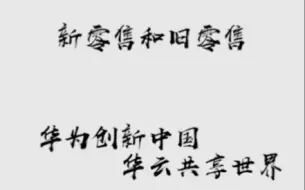 新零售和旧零售
华为创新中国
华云共享世界